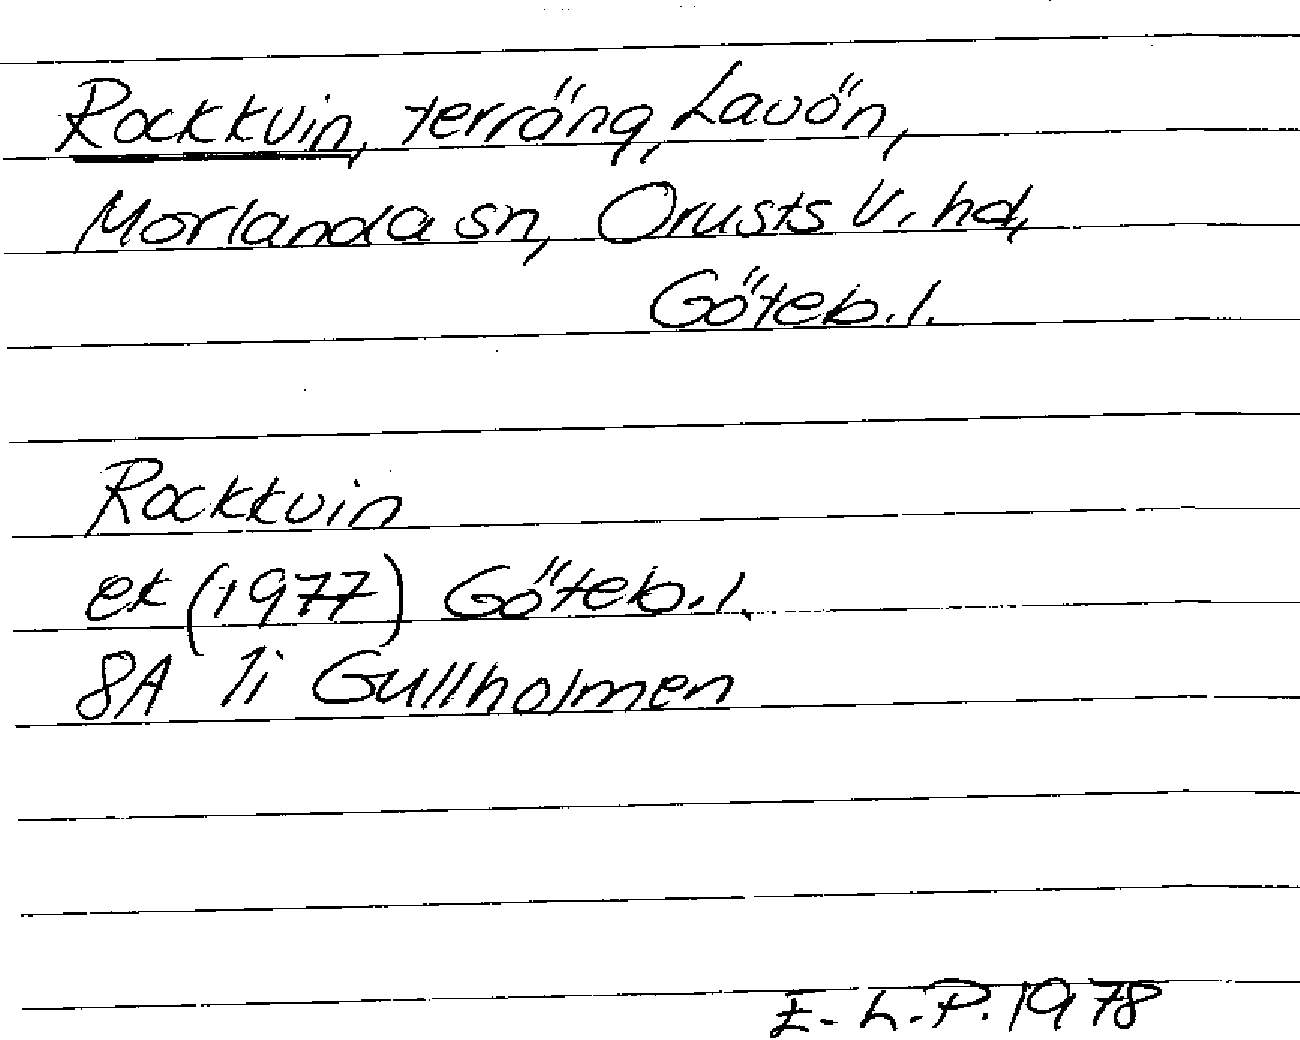 Rockkvin, terräng, Lavön,
Morlanda sn, Orusts V. hd,
Göteb. l.
Rockkvin
ek (1977) Göteb. l.
8A 1i Gullholmen
E. L. P. 1978